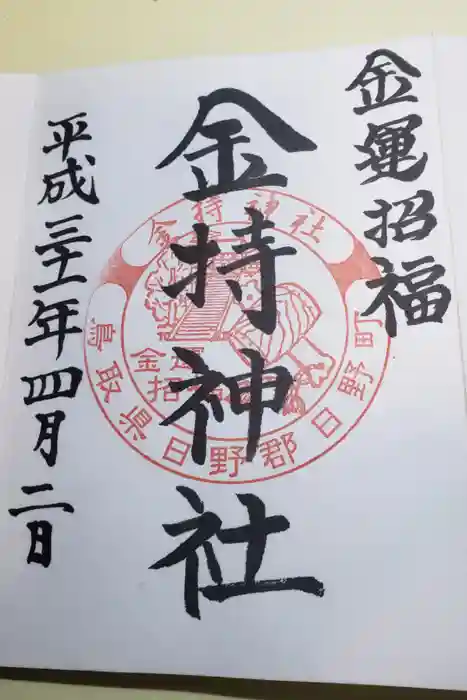 金運招福
金持神社
平成三十一年四月二日
金持神社
鳥取県日野郡日野町
金運
招福